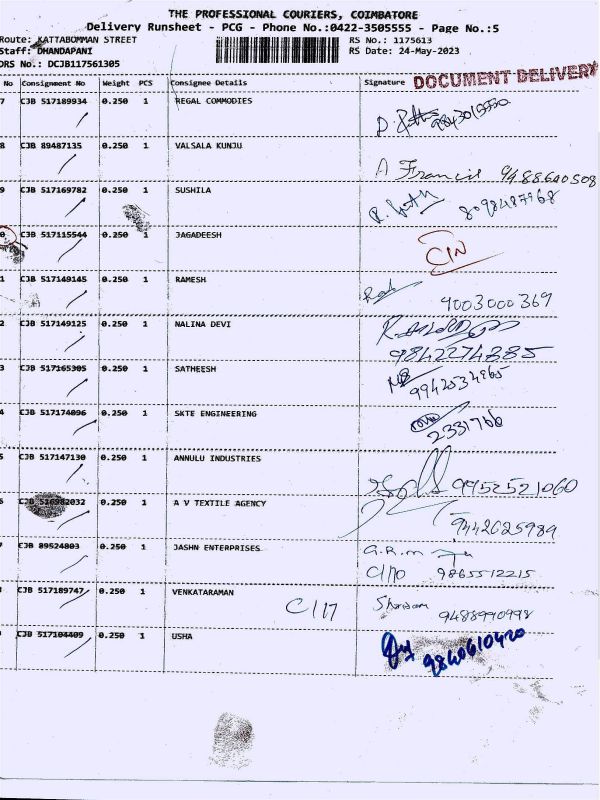 THE PROFESSIONAL COURIERS, COIMBATORE
Delivery Runsheet - PCG - Phone No.:0422-3505555 - Page No.:5
Route: KATTABOMMAN STREET RS No.: 1175613
Staff: DHANDAPANI RS Date: 24-May-2023
DRS No.: DCJB117561305
No Consignment No Weight PCS Consignee Details Signature DOCUMENT DELIVERY
7 CJB 517189934 0.250 1 REGAL COMMODIES
8 CJB 89487135 0.250 1 VALSALA KUNJU
A Francis 9488600508
9 CJB 517169782 0.250 1 SUSHILA
8098487968
0 CJB 517115544 0.250 1 JAGADEESH
1 CJB 517149145 0.250 1 RAMESH
9003000369
2 CJB 517149125 0.250 1 NALINA DEVI
9842274385
3 CJB 517165305 0.250 1 SATHEESH
4 CJB 517174096 0.250 1 SKTE ENGINEERING
2331766
5 CJB 517147130 0.250 1 ANNULU INDUSTRIES
9952521060
6 CJB 516982032 0.250 1 A V TEXTILE AGENCY
9442025989
7 CJB 89524803 0.250 1 JASHN ENTERPRISES
9865512215
CJB 517189747 0.250 1 VENKATARAMAN
C/17
9488990998
CJB 517104409 0.250 1 USHA
9840610420